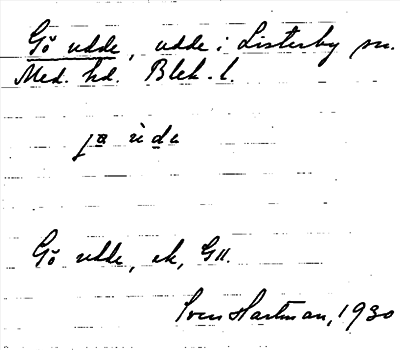 Gö udde, udde i Listerby sn.
Med. hd. Blek. l.
Gö udde, ek, G11.
Sven Hartman, 1930